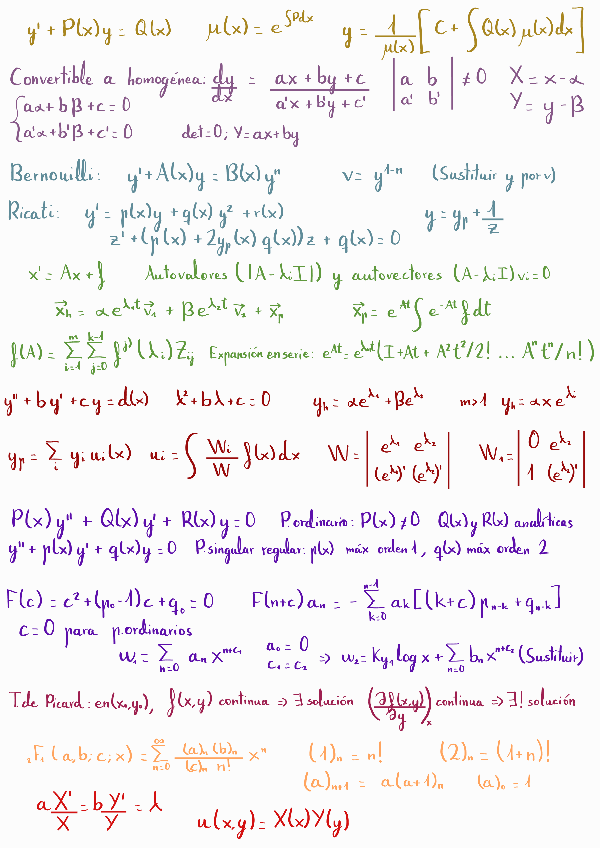 y' + P(x)y = Q(x)   μ(x) = e^∫Pdx   y = 1/μ(x) [C + ∫Q(x)μ(x)dx]
Convertible a homogénea: dy/dx = (ax + by + c)/(a'x + b'y + c')   |a b; a' b'| ≠ 0   X = x - α
{aα + bβ + c = 0   Y = y - β
{a'α + b'β + c' = 0   det=0; Y=ax+by
Bernouilli: y' + A(x)y = B(x)yⁿ   v = y^(1-n)   (Sustituir y por v)
Ricati: y' = p(x)y + q(x)y² + r(x)   y = y_p + 1/z
z' + (p(x) + 2y_p(x)q(x))z + q(x) = 0
x' = Ax + f   Autovalores (|A-λᵢI|) y autovectores (A-λᵢI)vᵢ=0
x⃗_h = αe^(λ₁t) v⃗₁ + βe^(λ₂t) v⃗₂ + x⃗_p   x⃗_p = e^(At) ∫ e^(-At) f dt
f(A) = Σ_(i=1)^m Σ_(j=0)^(k-1) f^(j)(λᵢ) Z_ij   Expansión en serie: e^(At) = e^(λt)(I+At + A²t²/2! ... Aⁿtⁿ/n!)
y'' + by' + cy = d(x)   λ² + bλ + c = 0   y_h = αe^(λ₁) + βe^(λ₂)   m>1   y_h = αxe^(λᵢ)
y_p = Σ_i yᵢuᵢ(x)   uᵢ = ∫ Wᵢ/W f(x)dx   W = |e^(λ₁) e^(λ₂); (e^(λ₁))' (e^(λ₂))'|   W₁ = |0 e^(λ₂); 1 (e^(λ₂))'|
P(x)y'' + Q(x)y' + R(x)y = 0   P.ordinario: P(x) ≠ 0   Q(x) y R(x) analíticas
y'' + p(x)y' + q(x)y = 0   P.singular regular: p(x) máx orden 1, q(x) máx orden 2
F(c) = c² + (p₀-1)c + q₀ = 0   F(n+c)aₙ = -Σ_(k=0)^(n-1) a_k[(k+c)p_(n-k) + q_(n-k)]
c = 0 para p.ordinarios
w₁ = Σ_(n=0) aₙx^(n+c₁)   a₀ = 0   c₁ = c₂   ⇒ w₂ = Ky₁ log x + Σ_(n=0) bₙx^(n+c₂) (Sustituir)
T.de Picard: en (x₀,y₀), f(x,y) continua ⇒ ∃ solución   (∂f(x,y)/∂y)_x continua ⇒ ∃! solución
₂F₁(a,b;c;x) = Σ_(n=0)^∞ (a)ₙ(b)ₙ/((c)ₙ n!) xⁿ   (1)ₙ = n!   (2)ₙ = (1+n)!
(a)ₙ₊₁ = a(a+1)ₙ   (a)₀ = 1
a X'/X = b Y'/Y = λ   u(x,y) = X(x)Y(y)